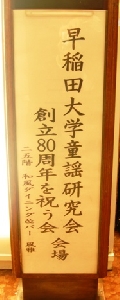 早稲田大学童謡研究会
創立80周年を祝う会 会場
二五階 和風ダイニング&バー 風雅